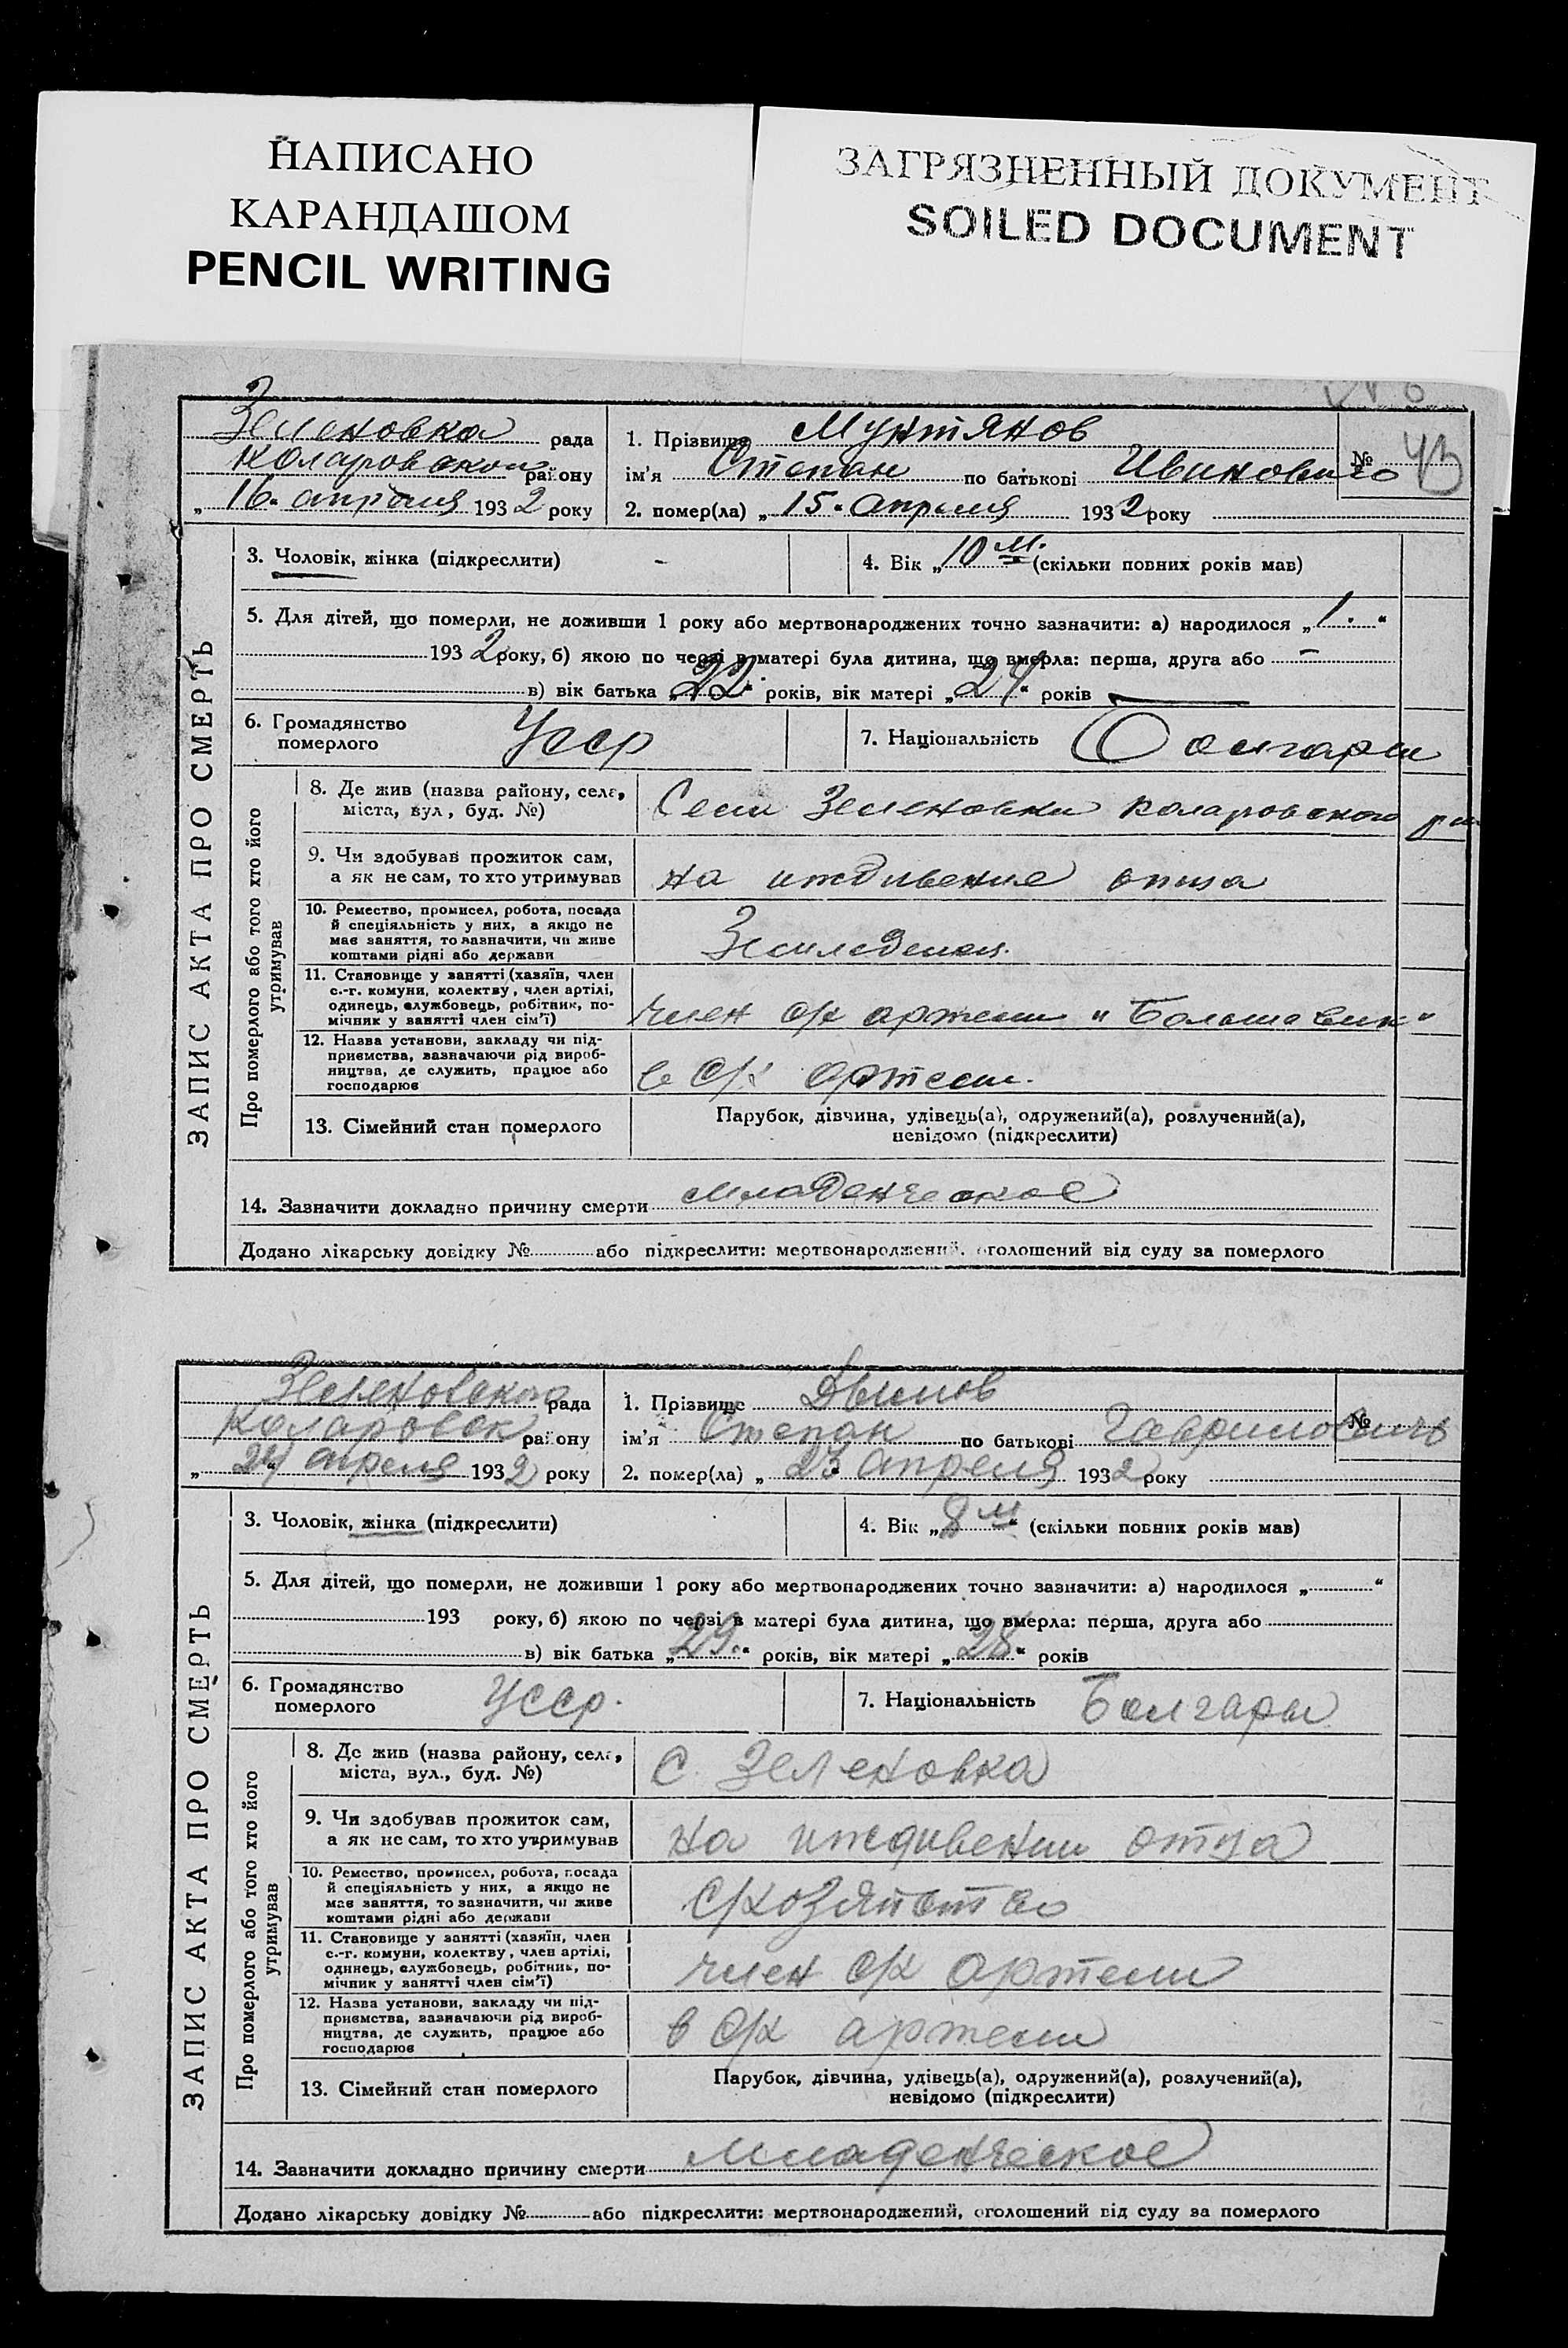 НАПИСАНО
КАРАНДАШОМ
PENCIL WRITING
ЗАГРЯЗНЕННЫЙ ДОКУМЕНТ
SOILED DOCUMENT
ЗАПИС АКТА ПРО СМЕРТЬ
Зеленовка рада
Коларовском району
„16" апреля 1932 року
1. Прізвище Мунтянов
№ 43
ім'я Степан по батькові Иванович
2. помер(ла) „15" апреля 1932 року
3. Чоловік, жінка (підкреслити) -
4. Вік „10 м." (скільки повних років мав)
5. Для дітей, що померли, не доживши 1 року або мертвонароджених точно зазначити: а) народилося „1."
1932 року, б) якою по черзі в матері була дитина, що вмерла: перша, друга або —
в) вік батька „22" років, вік матері „24" років
6. Громадянство померлого Усср
7. Національність Болгары
Про померлого або того хто його утримував
8. Де жив (назва району, села, міста, вул, буд. №) Сели Зеленовки Коларовского
9. Чи здобував прожиток сам, а як не сам, то хто утримував на иждивение отца
10. Ремество, промисел, робота, посада й спеціяльність у них, а якщо не має заняття, то зазначити, чи живе коштами рідні або держави
11. Становище у занятті (хазяїн, член с.-г. комуни, колектву, член артілі, одинець, службовець, робітник, помічник у занятті член сім'ї) член с/х артели "Большевик"
12. Назва установи, закладу чи підприємства, зазначаючи рід виробництва, де служить, працює або господарює в с/х артели.
13. Сімейний стан померлого Парубок, дівчина, удівець(а), одружений(а), розлучений(а), невідомо (підкреслити)
14. Зазначити докладно причину смерти младенческое
Додано лікарську довідку № або підкреслити: мертвонароджений, оголошений від суду за померлого
ЗАПИС АКТА ПРО СМЕРТЬ
Зеленовская рада
Коларовск району
„24" апреля 1932 року
1. Прізвище Дымов
№
ім'я Степан по батькові Гаврилович
2. помер(ла) „23 апреля 1932 року
3. Чоловік, жінка (підкреслити)
4. Вік „8 м" (скільки повних років мав)
5. Для дітей, що померли, не доживши 1 року або мертвонароджених точно зазначити: а) народилося „ "
193 року, б) якою по черзі в матері була дитина, що вмерла: перша, друга або
в) вік батька „29" років, вік матері „28" років
6. Громадянство померлого Усср.
7. Національність Болгары
Про померлого або того хто його утримував
8. Де жив (назва району, села, міста, вул., буд. №) С. Зеленовка
9. Чи здобував прожиток сам, а як не сам, то хто утримував на иждивении отца
10. Ремество, промисел, робота, посада й спеціяльність у них, а якщо не має заняття, то зазначити, чи живе коштами рідні або держави с/хозяйство
11. Становище у занятті (хазяїн, член с.-г. комуни, колектву, член артілі, одинець, службовець, робітник, помічник у занятті член сім'ї) член с/х артели
12. Назва установи, закладу чи підприємства, зазначаючи рід виробництва, де служить, працює або господарює в с/х артели
13. Сімейний стан померлого Парубок, дівчина, удівець(а), одружений(а), розлучений(а), невідомо (підкреслити)
14. Зазначити докладно причину смерти младенческое
Додано лікарську довідку № або підкреслити: мертвонароджений, оголошений від суду за померлого